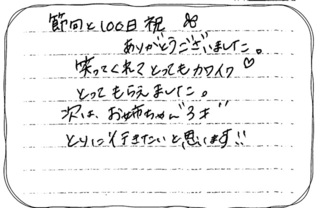 節句と100日祝
ありがとうございました。
笑ってくれてとってもカワイク♡
とってもらえました。
次は、お姉ちゃん"3才"
とりに行きたいと思います!!